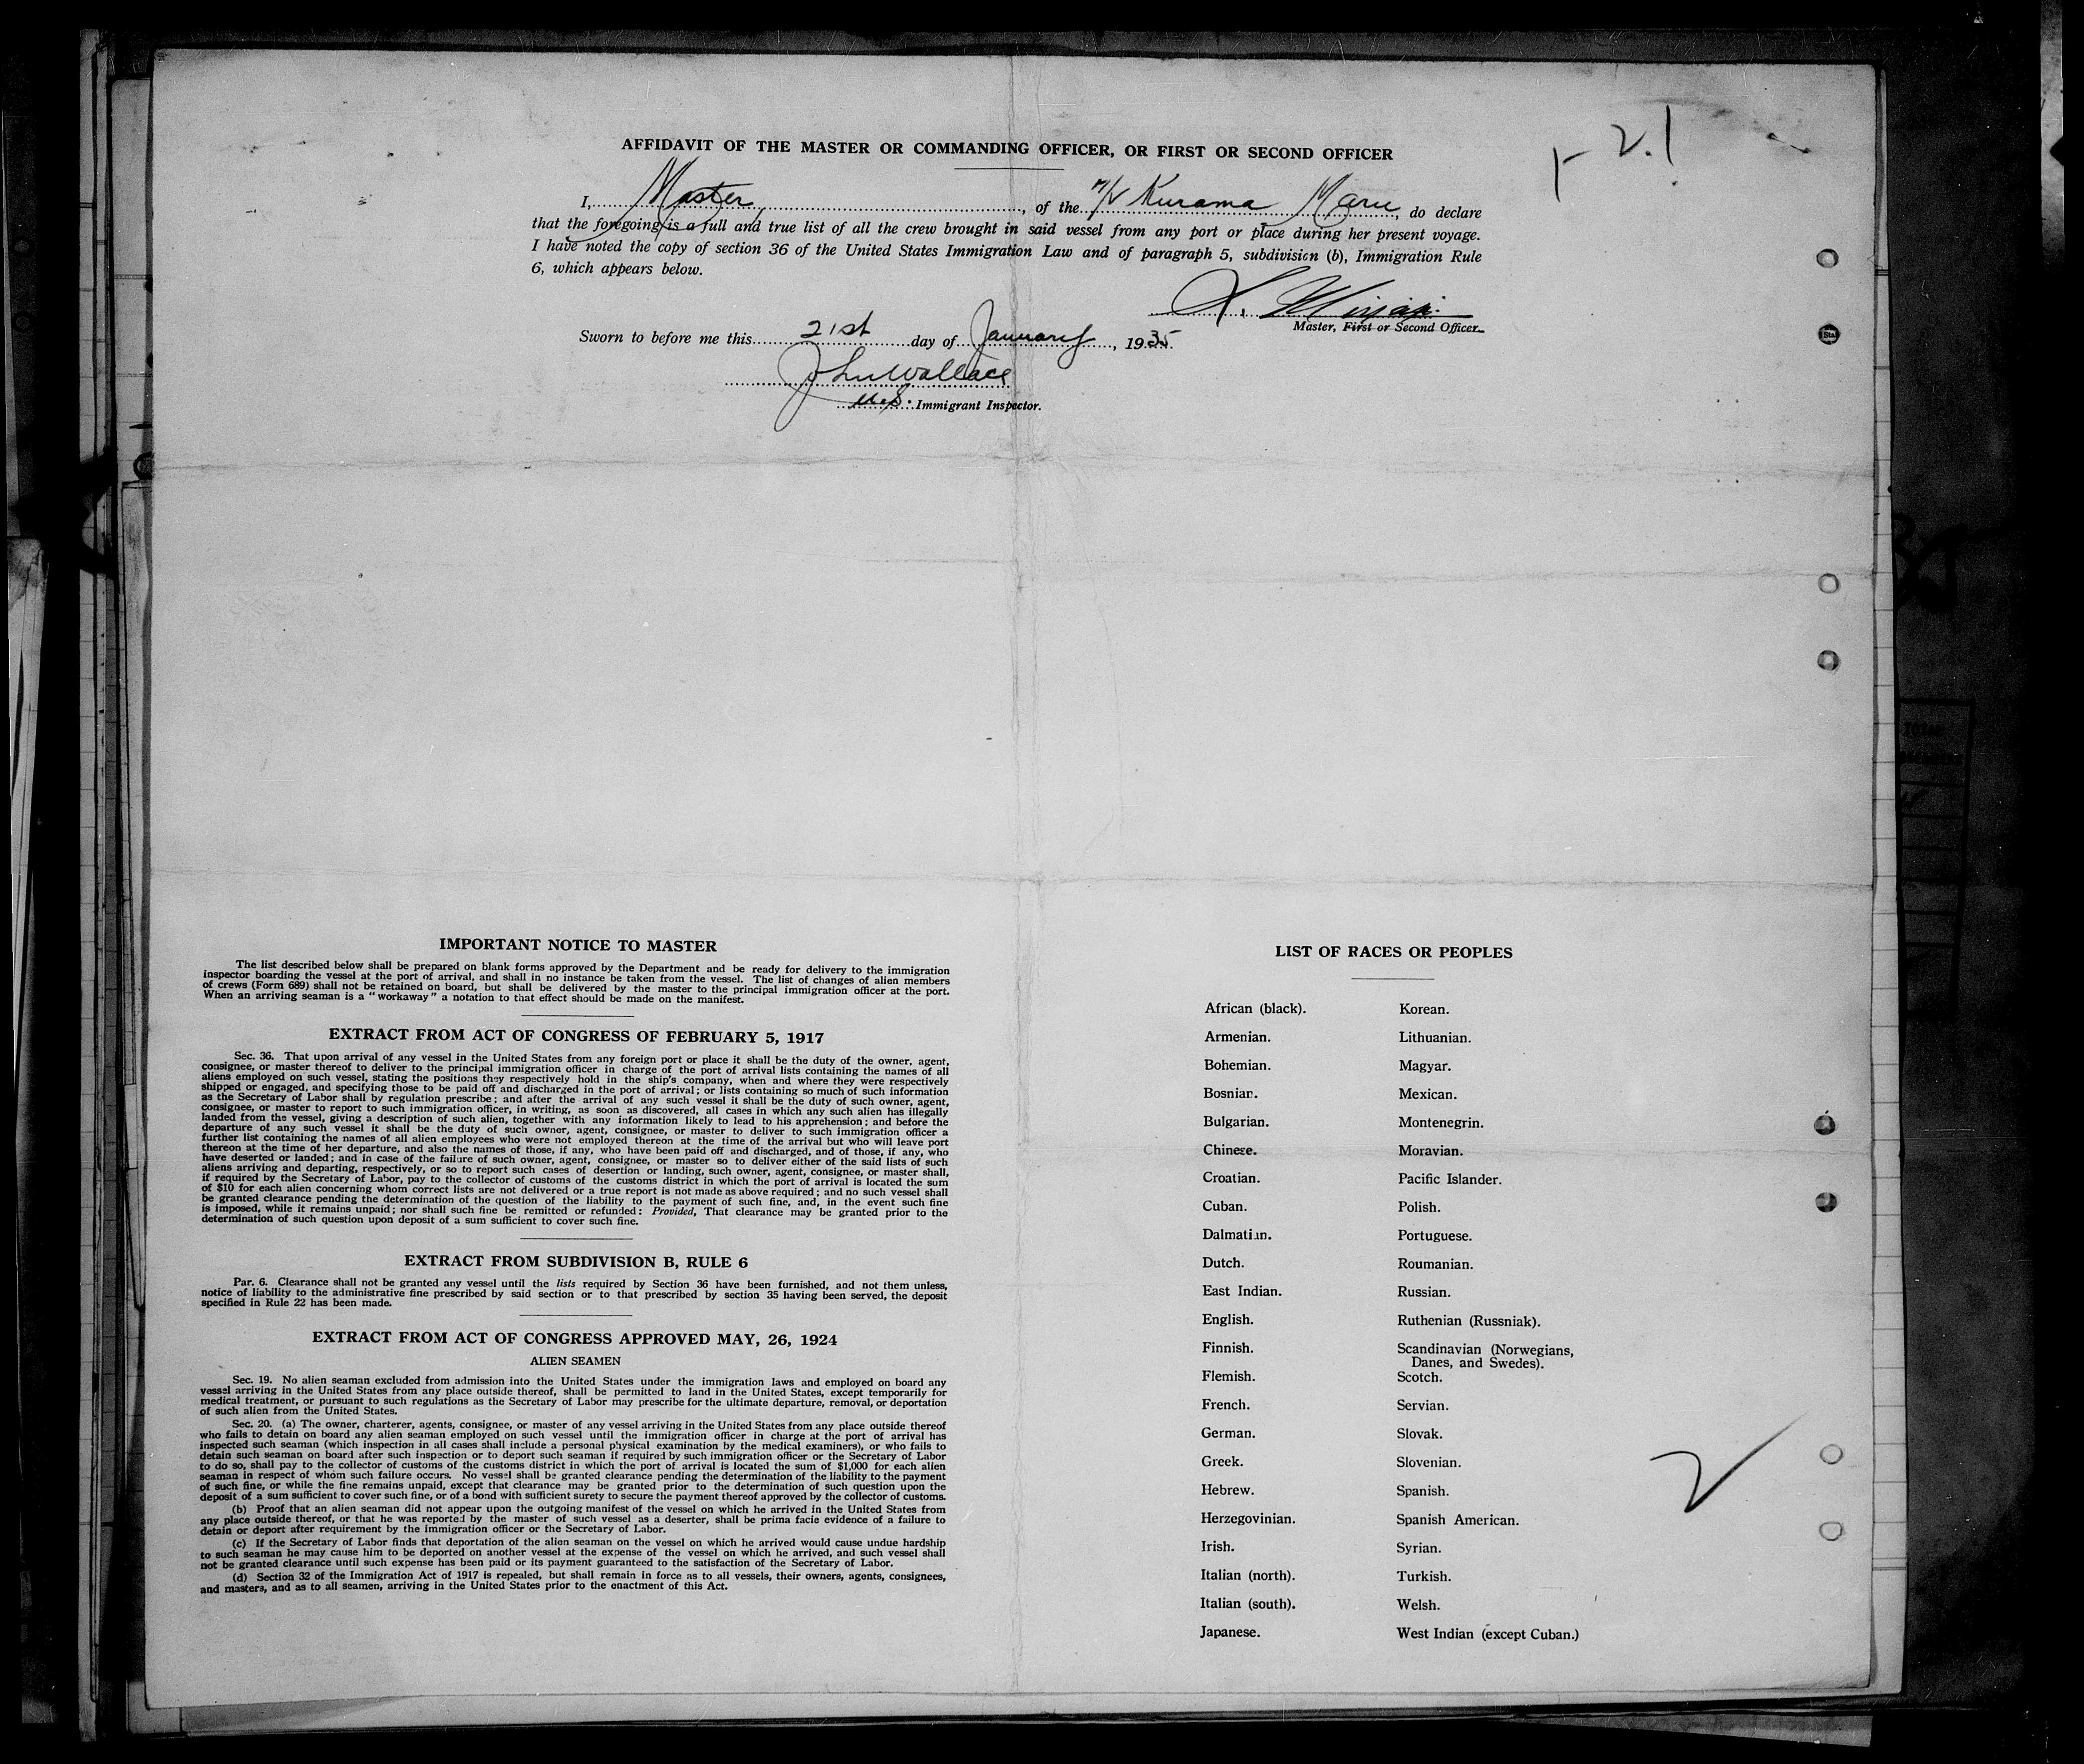 1- 21
AFFIDAVIT OF THE MASTER OR COMMANDING OFFICER, OR FIRST OR SECOND OFFICER
I, Master, of the M/V Kurama Maru, do declare
that the foregoing is a full and true list of all the crew brought in said vessel from any port or place during her present voyage.
I have noted the copy of section 36 of the United States Immigration Law and of paragraph 5, subdivision (b), Immigration Rule
6, which appears below.
Master, First or Second Officer.
Sworn to before me this 21st day of January, 1935.
John Wallace
U.S. Immigrant Inspector.
IMPORTANT NOTICE TO MASTER
The list described below shall be prepared on blank forms approved by the Department and be ready for delivery to the immigration
inspector boarding the vessel at the port of arrival, and shall in no instance be taken from the vessel. The list of changes of alien members
of crews (Form 689) shall not be retained on board, but shall be delivered by the master to the principal immigration officer at the port.
When an arriving seaman is a "workaway" a notation to that effect should be made on the manifest.
EXTRACT FROM ACT OF CONGRESS OF FEBRUARY 5, 1917
Sec. 36. That upon arrival of any vessel in the United States from any foreign port or place it shall be the duty of the owner, agent,
consignee, or master thereof to deliver to the principal immigration officer in charge of the port of arrival lists containing the names of all
aliens employed on such vessel, stating the positions they respectively hold in the ship's company, when and where they were respectively
shipped or engaged, and specifying those to be paid off and discharged in the port of arrival; or lists containing so much of such information
as the Secretary of Labor shall by regulation prescribe; and after the arrival of any such vessel it shall be the duty of such owner, agent,
consignee, or master to report to such immigration officer, in writing, as soon as discovered, all cases in which any such alien has illegally
landed from the vessel, giving a description of such alien, together with any information likely to lead to his apprehension; and before the
departure of any such vessel it shall be the duty of such owner, agent, consignee, or master to deliver to such immigration officer a
further list containing the names of all alien employees who were not employed thereon at the time of the arrival but who will leave port
thereon at the time of her departure, and also the names of those, if any, who have been paid off and discharged, and of those, if any, who
have deserted or landed; and in case of the failure of such owner, agent, consignee, or master so to deliver either of the said lists of such
aliens arriving and departing, respectively, or so to report such cases of desertion or landing, such owner, agent, consignee, or master shall,
if required by the Secretary of Labor, pay to the collector of customs of the customs district in which the port of arrival is located the sum
of $10 for each alien concerning whom correct lists are not delivered or a true report is not made as above required; and no such vessel shall
be granted clearance pending the determination of the question of the liability to the payment of such fine, and, in the event such fine
is imposed, while it remains unpaid; nor shall such fine be remitted or refunded: Provided, That clearance may be granted prior to the
determination of such question upon deposit of a sum sufficient to cover such fine.
EXTRACT FROM SUBDIVISION B, RULE 6
Par. 6. Clearance shall not be granted any vessel until the lists required by Section 36 have been furnished, and not them unless,
notice of liability to the administrative fine prescribed by said section or to that prescribed by section 35 having been served, the deposit
specified in Rule 22 has been made.
EXTRACT FROM ACT OF CONGRESS APPROVED MAY, 26, 1924
ALIEN SEAMEN
Sec. 19. No alien seaman excluded from admission into the United States under the immigration laws and employed on board any
vessel arriving in the United States from any place outside thereof, shall be permitted to land in the United States, except temporarily for
medical treatment, or pursuant to such regulations as the Secretary of Labor may prescribe for the ultimate departure, removal, or deportation
of such alien from the United States.
Sec. 20. (a) The owner, charterer, agents, consignee, or master of any vessel arriving in the United States from any place outside thereof
who fails to detain on board any alien seaman employed on such vessel until the immigration officer in charge at the port of arrival has
inspected such seaman (which inspection in all cases shall include a personal physical examination by the medical examiners), or who fails to
detain such seaman on board after such inspection or to deport such seaman if required by such immigration officer or the Secretary of Labor
to do so, shall pay to the collector of customs of the customs district in which the port of arrival is located the sum of $1,000 for each alien
seaman in respect of whom such failure occurs. No vessel shall be granted clearance pending the determination of the liability to the payment
of such fine, or while the fine remains unpaid, except that clearance may be granted prior to the determination of such question upon the
deposit of a sum sufficient to cover such fine, or of a bond with sufficient surety to secure the payment thereof approved by the collector of customs.
(b) Proof that an alien seaman did not appear upon the outgoing manifest of the vessel on which he arrived in the United States from
any place outside thereof, or that he was reported by the master of such vessel as a deserter, shall be prima facie evidence of a failure to
detain or deport after requirement by the immigration officer or the Secretary of Labor.
(c) If the Secretary of Labor finds that deportation of the alien seaman on the vessel on which he arrived would cause undue hardship
to such seaman he may cause him to be deported on another vessel at the expense of the vessel on which he arrived, and such vessel shall
not be granted clearance until such expense has been paid or its payment guaranteed to the satisfaction of the Secretary of Labor.
(d) Section 32 of the Immigration Act of 1917 is repealed, but shall remain in force as to all vessels, their owners, agents, consignees,
and masters, and as to all seamen, arriving in the United States prior to the enactment of this Act.
LIST OF RACES OR PEOPLES
African (black).
Armenian.
Bohemian.
Bosnian.
Bulgarian.
Chinese.
Croatian.
Cuban.
Dalmatian.
Dutch.
East Indian.
English.
Finnish.
Flemish.
French.
German.
Greek.
Hebrew.
Herzegovinian.
Irish.
Italian (north).
Italian (south).
Japanese.
Korean.
Lithuanian.
Magyar.
Mexican.
Montenegrin.
Moravian.
Pacific Islander.
Polish.
Portuguese.
Roumanian.
Russian.
Ruthenian (Russniak).
Scandinavian (Norwegians,
Danes, and Swedes).
Scotch.
Servian.
Slovak.
Slovenian.
Spanish.
Spanish American.
Syrian.
Turkish.
Welsh.
West Indian (except Cuban.)